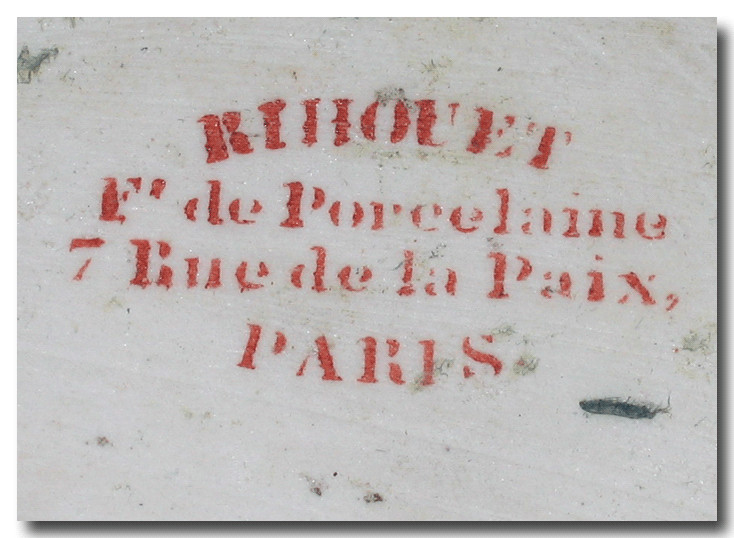 RIHOUET
Ft de Porcelaine
7 Rue de la Paix,
PARIS